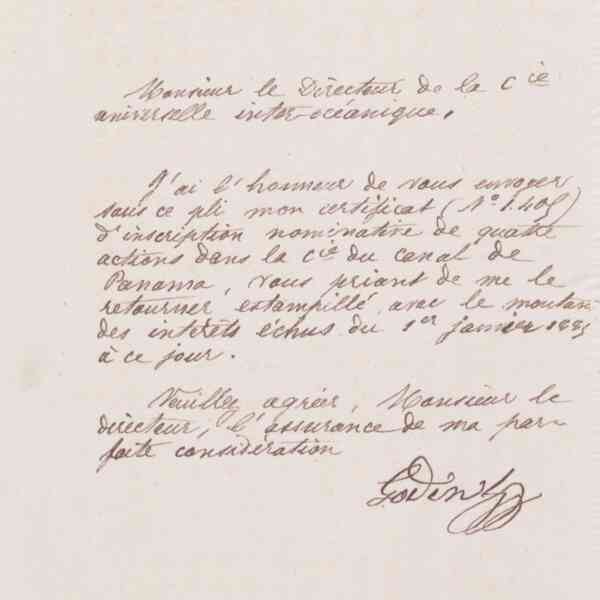 Monsieur le Directeur de la Cie
universelle inter-océanique.
J'ai l'honneur de vous envoyer
sous ce pli mon certificat (No 1.405)
d'inscription nominative de quatre
actions dans la Cie du canal de
Panama, vous priant de me le
retourner estampillé avec le montant
des intérêts échus du 1er janvier 1885
à ce jour.
Veuillez agréer, Monsieur le
directeur, l'assurance de ma par-
faite considération
Godin